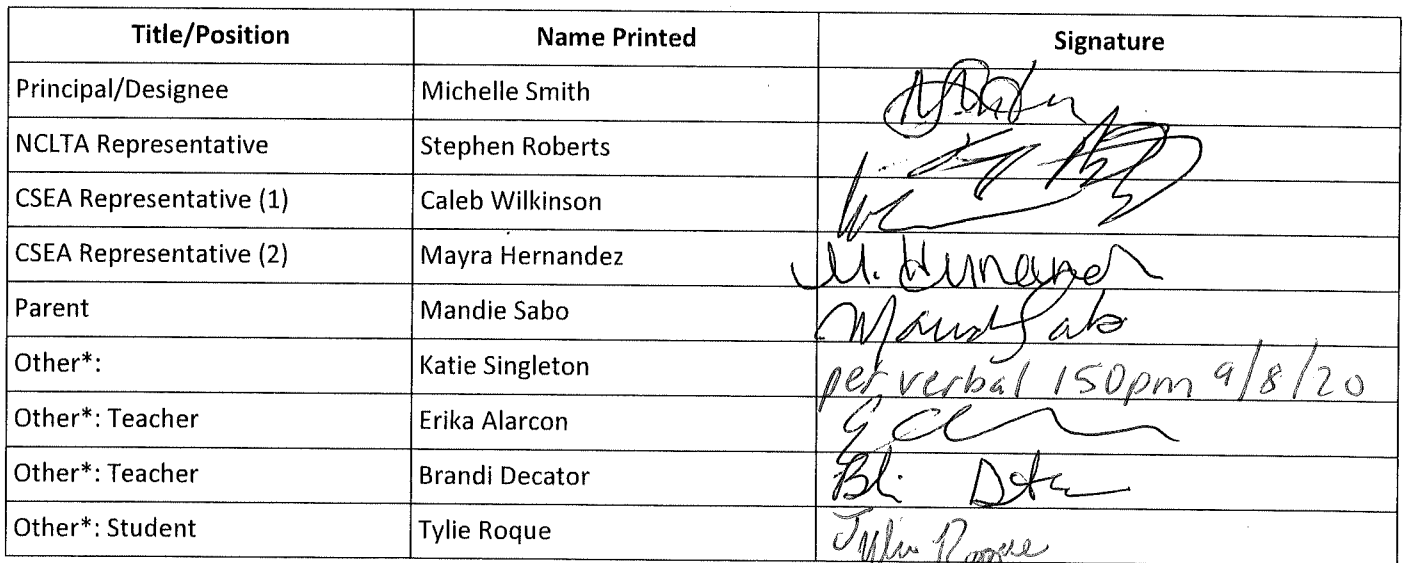 Title/Position Name Printed Signature
Principal/Designee Michelle Smith
NCLTA Representative Stephen Roberts
CSEA Representative (1) Caleb Wilkinson
CSEA Representative (2) Mayra Hernandez M.
Parent Mandie Sabo
Other*: Katie Singleton per verbal 150pm 9/8/20
Other*: Teacher Erika Alarcon
Other*: Teacher Brandi Decator
Other*: Student Tylie Roque Tylie Roque